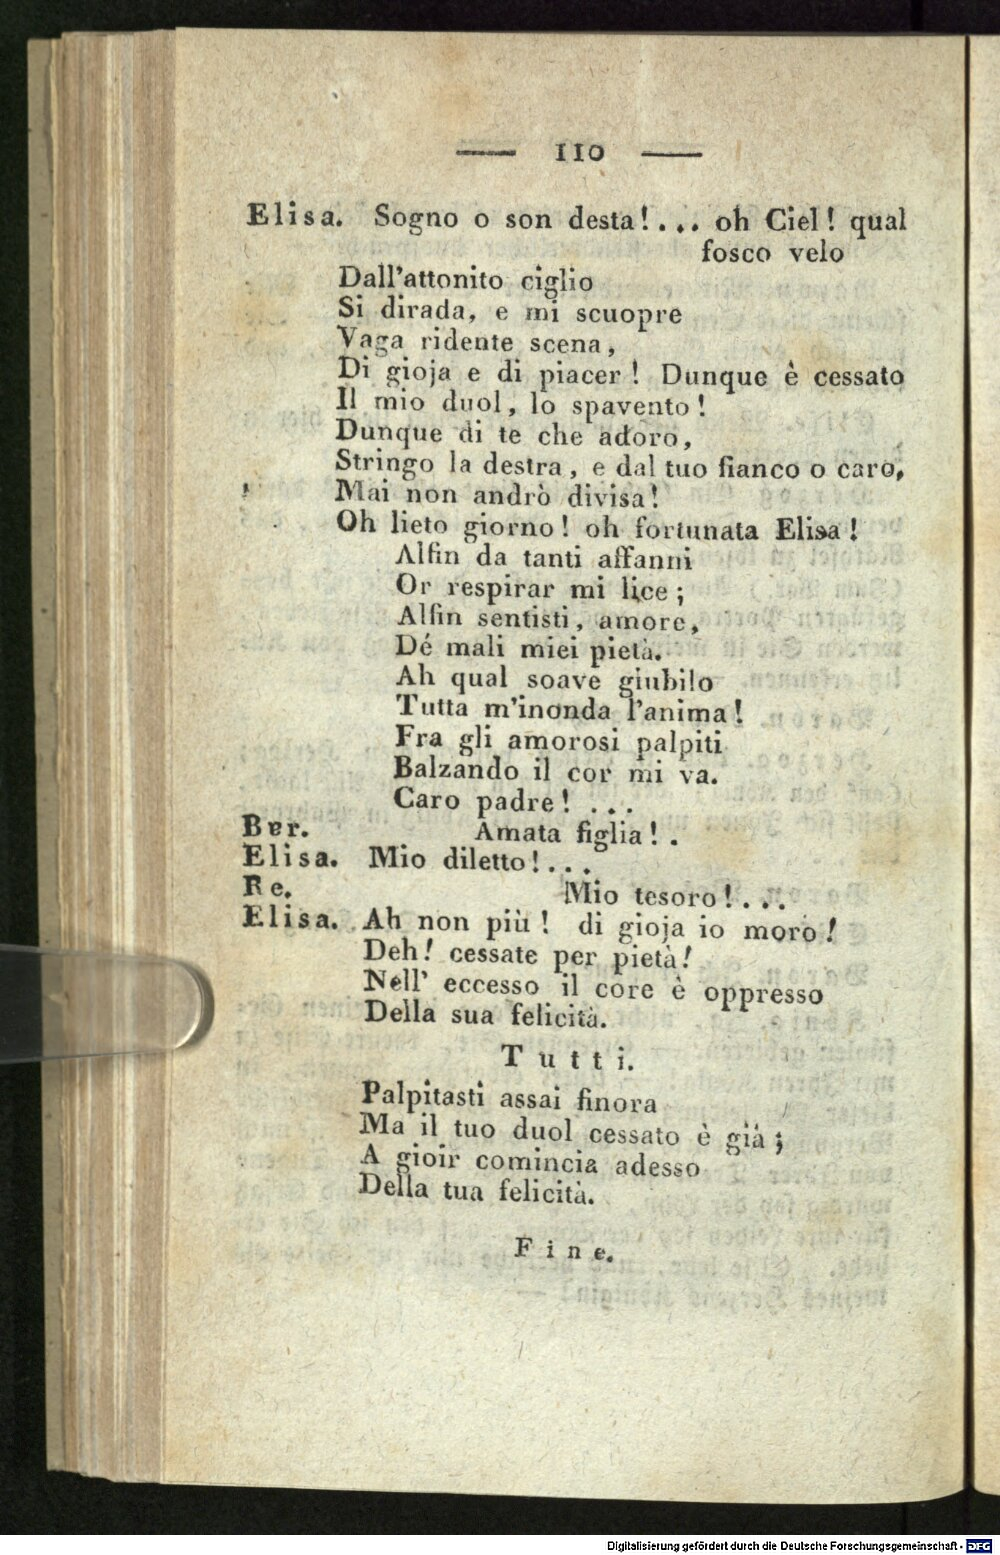 — 110 —
Elisa. Sogno o son desta!... oh Ciel! qual
fosco velo
Dall'attonito ciglio
Si dirada, e mi scuopre
Vaga ridente scena,
Di gioja e di piacer! Dunque è cessato
Il mio duol, lo spavento!
Dunque di te che adoro,
Stringo la destra, e dal tuo fianco o caro,
Mai non andrò divisa!
Oh lieto giorno! oh fortunata Elisa!
Alfin da tanti affanni
Or respirar mi lice;
Alfin sentisti, amore,
Dé mali miei pietà.
Ah qual soave giubilo
Tutta m'inonda l'anima!
Fra gli amorosi palpiti
Balzando il cor mi va.
Caro padre! ...
Bar. Amata figlia!.
Elisa. Mio diletto!...
Re. Mio tesoro!...
Elisa. Ah non più! di gioja io moro!
Deh! cessate per pietà!
Nell' eccesso il core è oppresso
Della sua felicità.
Tutti.
Palpitasti assai finora
Ma il tuo duol cessato è già;
A gioir comincia adesso
Della tua felicità.
Fine.
Digitalisierung gefördert durch die Deutsche Forschungsgemeinschaft - DFG